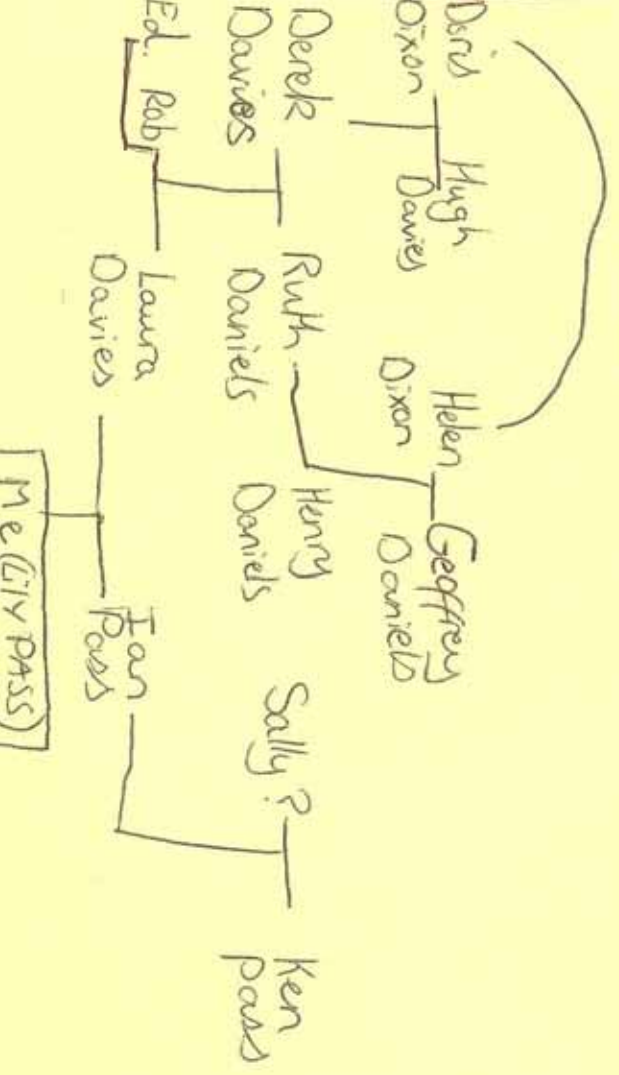 Doris
Dixon
Hugh
Davies
Helen
Dixon
Geoffrey
Daniels
Derek
Davies
Ruth
Daniels
Henry
Daniels
Sally?
Ken
pass
Ed. Rob
Laura
Davies
Ian
Pass
Me (LilY PASS)